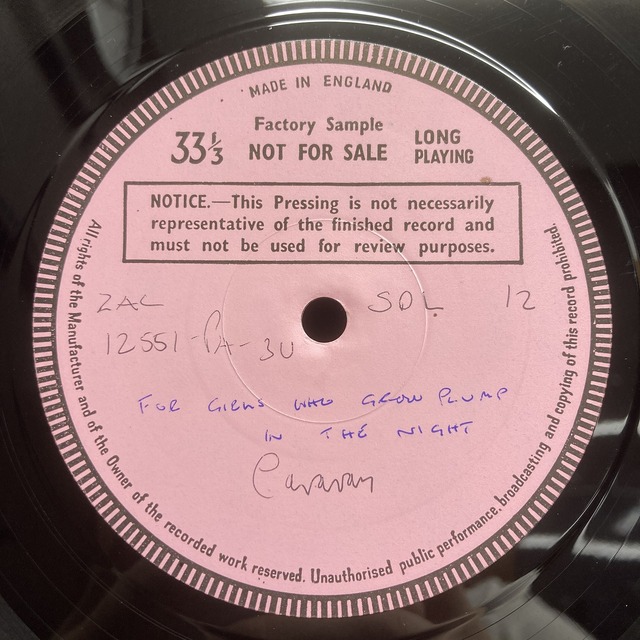 MADE IN ENGLAND
Factory Sample
33⅓ NOT FOR SALE LONG PLAYING
NOTICE.—This Pressing is not necessarily
representative of the finished record and
must not be used for review purposes.
ZAL SDL 12
12551-PA-3U
FOR GIRLS WHO GROW PLUMP
IN THE NIGHT
Caravan
All rights of the Manufacturer and of the Owner of the recorded work reserved. Unauthorised public performance, broadcasting and copying of this record prohibited.